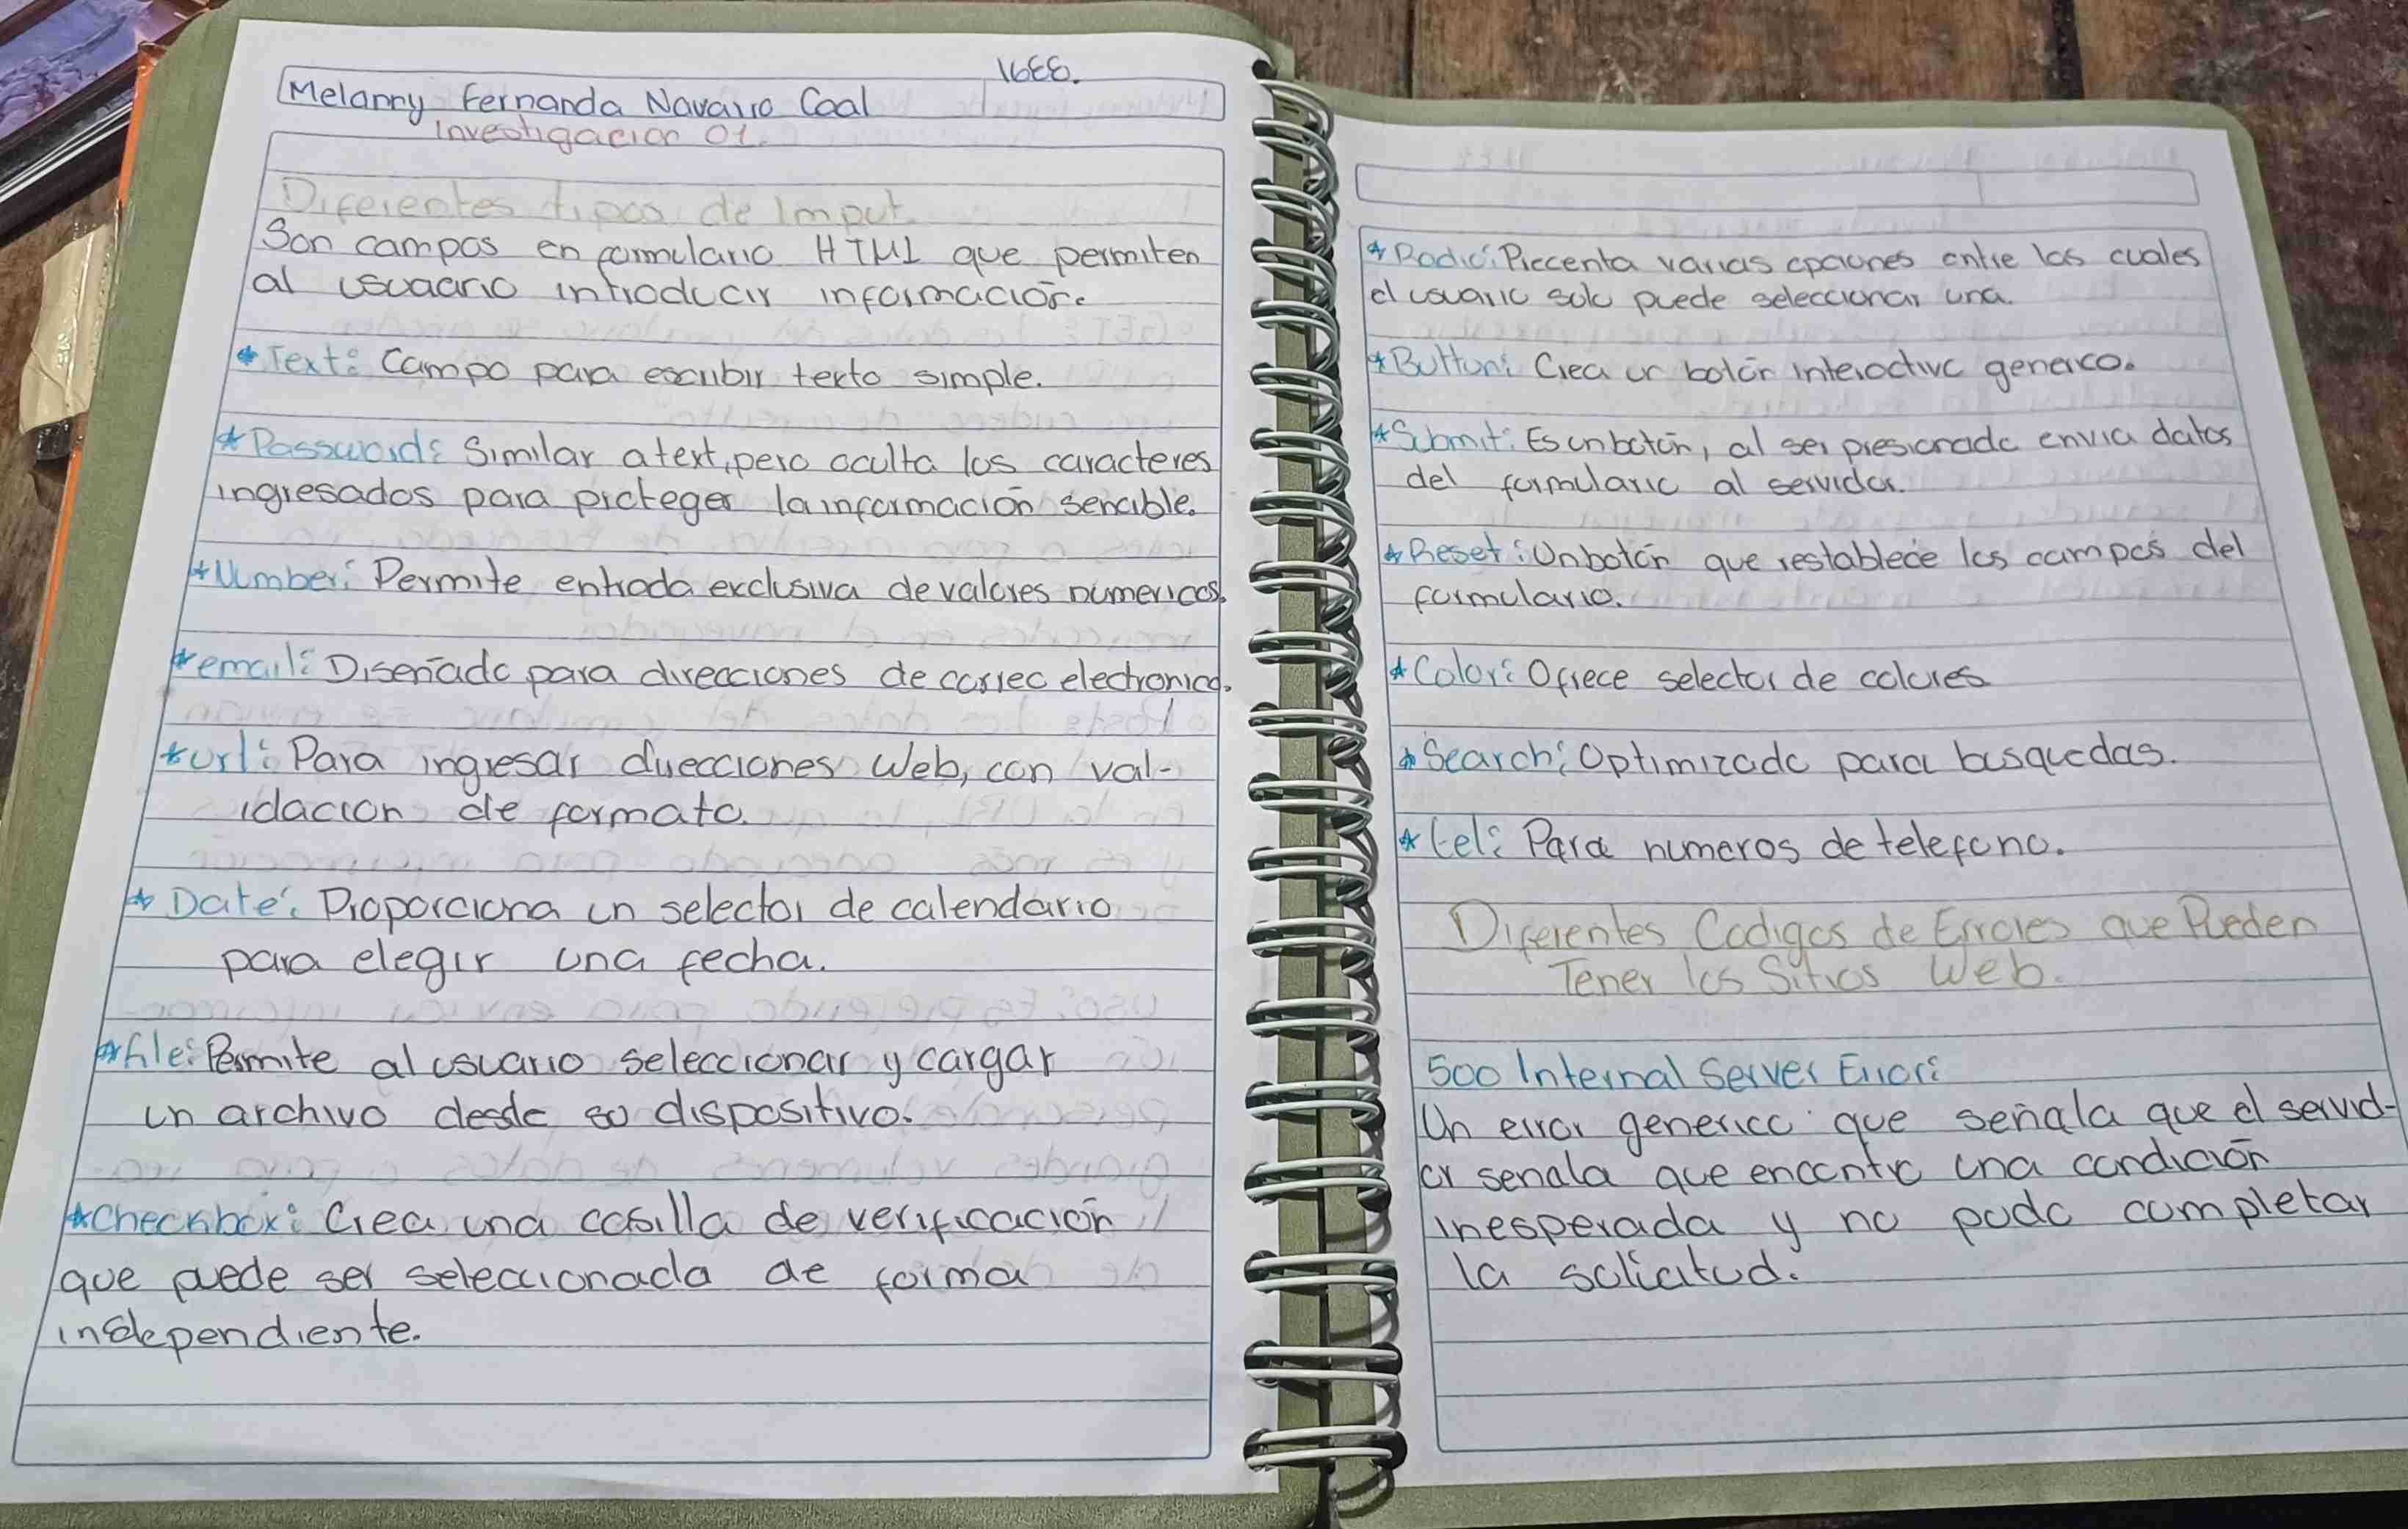 16EE.
Melanny Fernanda Navarro Coal
Investigacion 01.
Diferentes tipos de Imput.
Son campos en formulario HTML que permiten
al usuaario introducir información.
*Text: Campo para escribir texto simple.
*Password: Similar a text, pero oculta los caracteres
ingresados para proteger la información sencible.
*Number: Permite entrada exclusiva de valores numericos.
*email: Diseñado para direcciones de correo electronico.
*url: Para ingresar direcciones Web, con val-
idacion de formato.
*Date: Proporciona un selector de calendario
para elegir una fecha.
*file: Permite al usuario seleccionar y cargar
un archivo desde so dispositivo.
*checkbox: Crea una casilla de verificación
que puede ser seleccionada de forma
independiente.
*Radio: Precenta varias opciones entre los cuales
el usuario solo puede seleccionar una.
*Button: Crea un botón interactivo generico.
*Submit: Es un botón, al ser presionado envia datos
del formulario al servidor.
*Reset: Un botón que restablece los campos del
formulario.
*Color: Ofrece selector de colores
*Search: Optimizado para busquedas.
*tel: Para numeros de telefono.
Diferentes Codigos de Errores que Pueden
Tener los Sitios Web.
500 Internal Server Error:
Un error generico que señala que el servid-
or senala que encontro una condición
inesperada y no pudo completar
la solicitud.